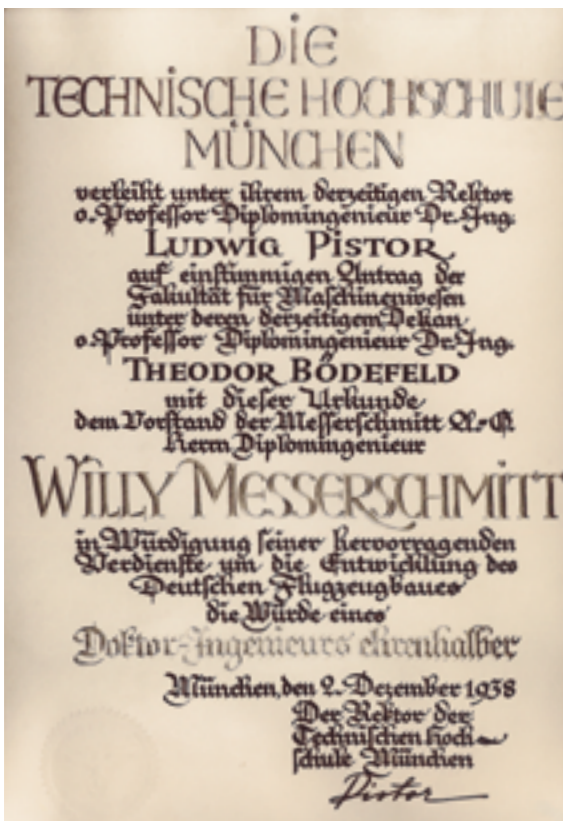 DIE
TECHNISCHE HOCHSCHULE
MÜNCHEN
verleiht unter ihrem derzeitigen Rektor
o. Professor Diplomingenieur Dr.-Ing.
LUDWIG PISTOR
auf einstimmigen Antrag der
Fakultät für Maschinenwesen
unter deren derzeitigem Dekan
o. Professor Diplomingenieur Dr.-Ing.
THEODOR BÖDEFELD
mit dieser Urkunde
dem Vorstand der Messerschmitt A.-G.
Herrn Diplomingenieur
WILLY MESSERSCHMITT
in Würdigung seiner hervorragenden
Verdienste um die Entwicklung des
Deutschen Flugzeugbaues
die Würde eines
Doktor-Ingenieurs ehrenhalber
München, den 2. Dezember 1938
Der Rektor der
Technischen Hoch-
schule München
Pistor